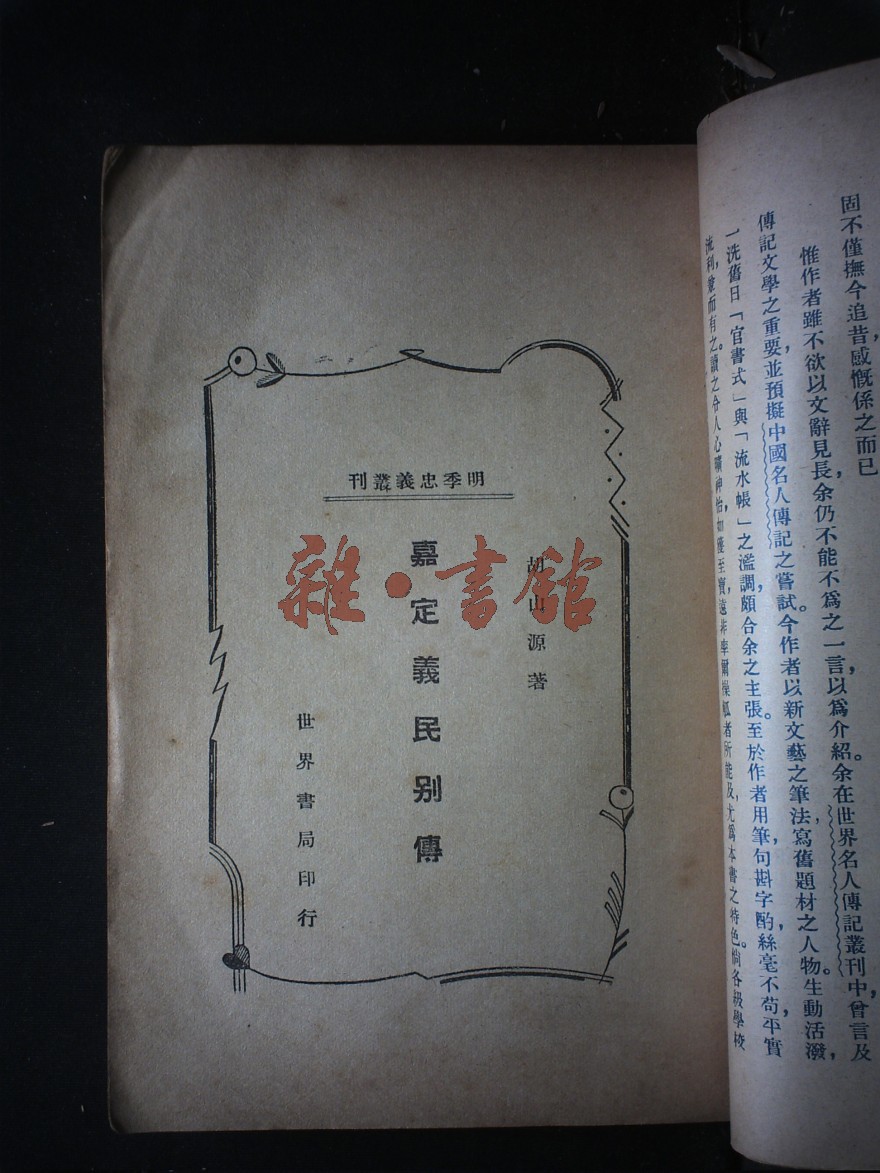 固不僅撫今追昔，感慨係之而已
惟作者雖不欲以文辭見長，余仍不能不為之一言，以為介紹。余在世界名人傳記叢刊中曾言及
傳記文學之重要，並預擬中國名人傳記之嘗試。今作者以新文藝之筆法，寫舊題材之人物，生動活潑，
一洗舊日「官書式」與「流水帳」之濫調，頗合余之主張。至於作者用筆，句斟字酌，絲毫不苟，平實
流利，兼而有之。讀之令人心曠神怡，如獲至寶，遠非率爾操觚者所能及，尤為本書之特色。倘各級學校
明季忠義叢刊
胡山源著
嘉定義民別傳
世界書局印行
雜·書館